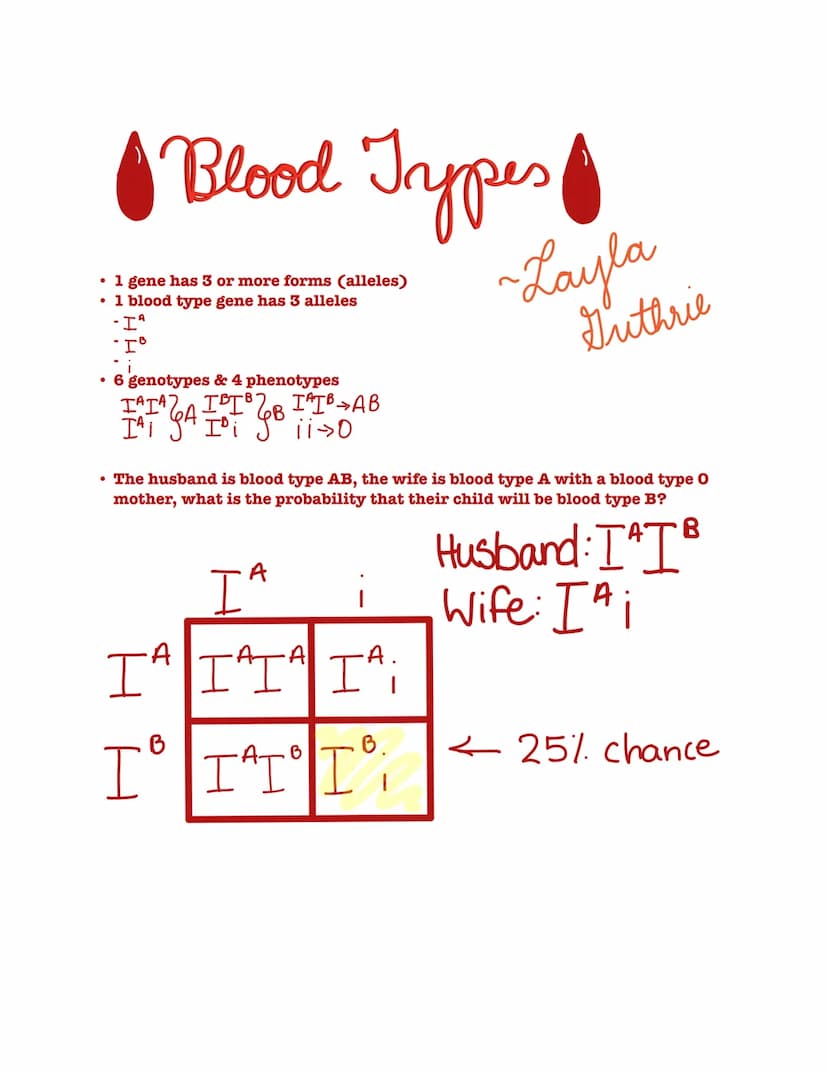 Blood Types
~Layla
Guthrie
• 1 gene has 3 or more forms (alleles)
• 1 blood type gene has 3 alleles
- Iᴬ
- Iᴮ
- i
• 6 genotypes & 4 phenotypes
IᴬIᴬ } A IᴮIᴮ } B IᴬIᴮ → AB
Iᴬi Iᴮi ii → O
• The husband is blood type AB, the wife is blood type A with a blood type O
mother, what is the probability that their child will be blood type B?
Husband: IᴬIᴮ
Wife: Iᴬi
Iᴬ i
Iᴬ IᴬIᴬ Iᴬi
Iᴮ IᴬIᴮ Iᴮi ← 25% chance